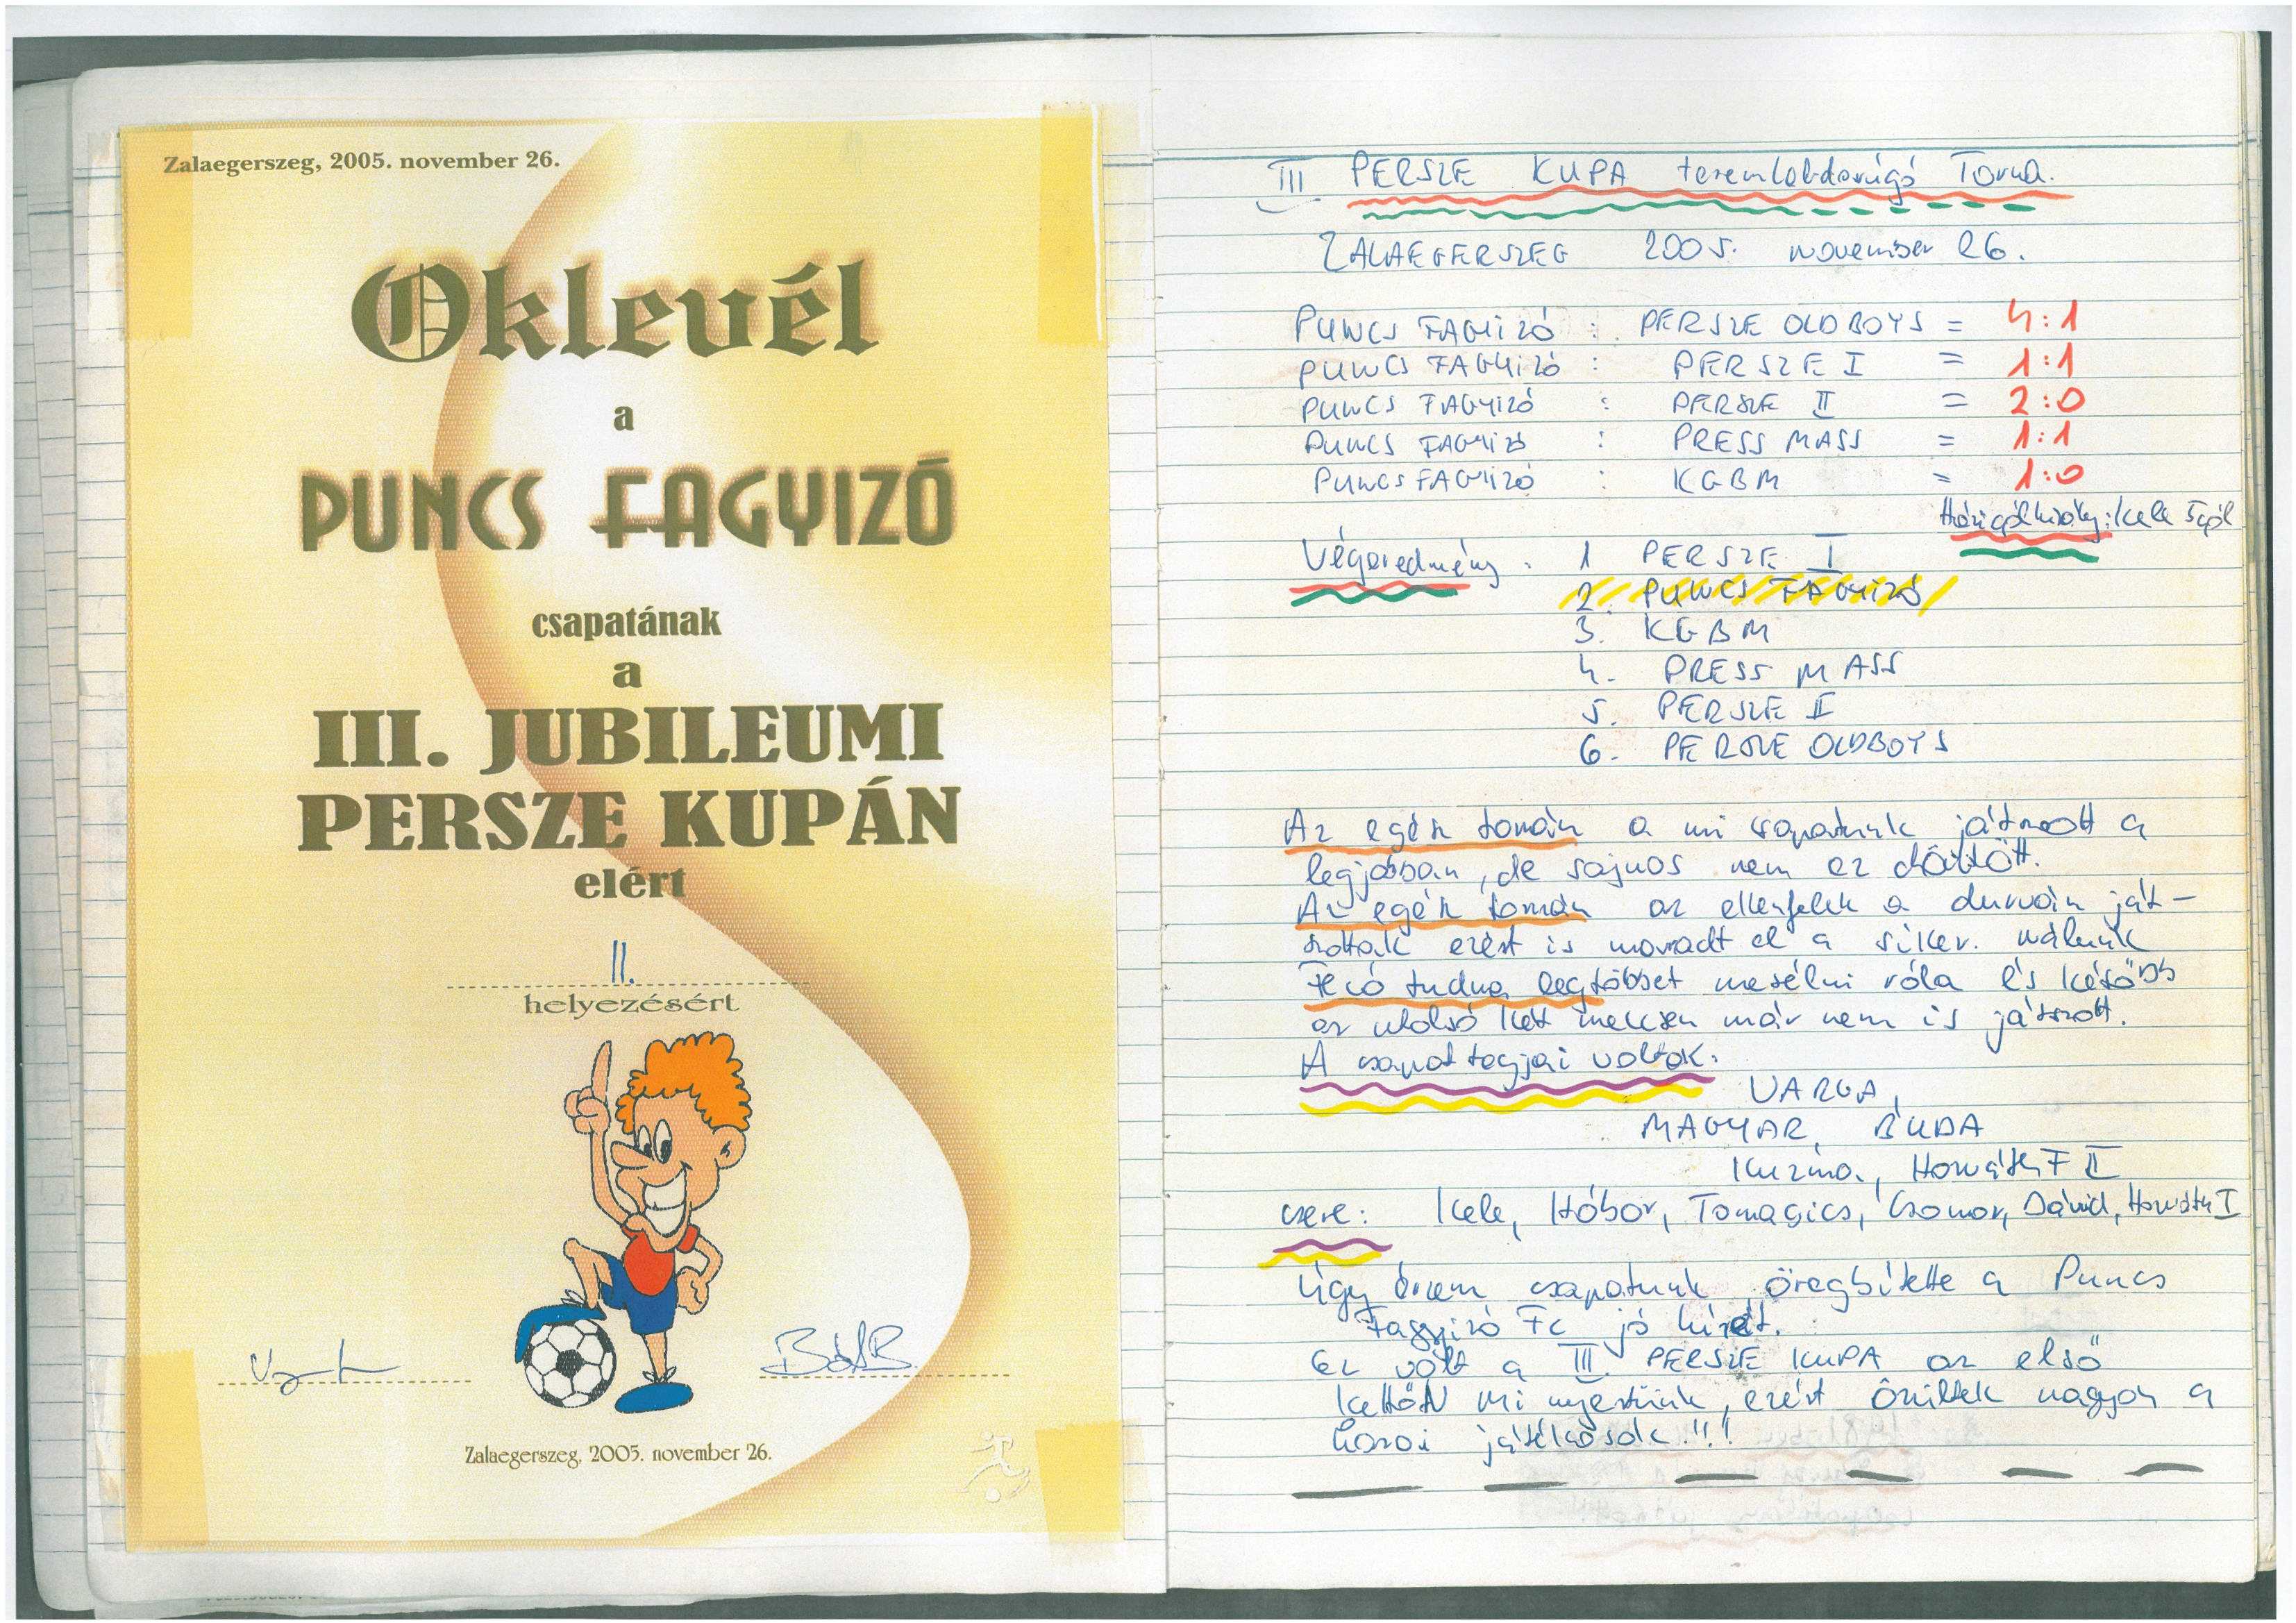 Zalaegerszeg, 2005. november 26.
Oklevél
a
PUNCS FAGYIZÓ
csapatának
a
III. JUBILEUMI
PERSZE KUPÁN
elért
II.
helyezésért
Zalaegerszeg, 2005. november 26.
III PERSZE KUPA teremlabdarúgó Torna.
ZALAEGERSZEG 2005. november 26.
PUNCS FAGYIZÓ : PERSZE OLDBOYS = 4:1
PUNCS FAGYIZÓ : PERSZE I = 1:1
PUNCS FAGYIZÓ : PERSZE II = 2:0
PUNCS FAGYIZÓ : PRESS MASS = 1:1
PUNCS FAGYIZÓ : KGBM = 1:0
Házigólkirály: Kele 5 gól
Végeredmény: 1 PERSZE I
2. PUNCS FAGYIZÓ
3. KGBM
4. PRESS MASS
5. PERSZE II
6. PERSZE OLDBOYS
Az egész tornán a mi csapatunk játszott a
legjobban, de sajnos nem ez döntött.
Az egész tornán az ellenfelek a durván ját-
szottak ezért is maradt el a siker. nálunk
Fecó tudna legtöbbet mesélni róla és később
az utolsó két meccsen már nem is játszott.
A csapat tagjai voltak:
VARGA,
MAGYAR, BUDA
Kuzma, Horváth F II
csere: Kele, Hóbor, Tomagics, Csomor, Dávid, Horváth I
Úgy érzem csapatunk öregbítette a Puncs
Fagyizó Fc jó hírét.
Ez volt a III. PERSZE KUPA az első
kettőt mi nyertünk, ezért örültek nagyon a
hazai játékosok!!!